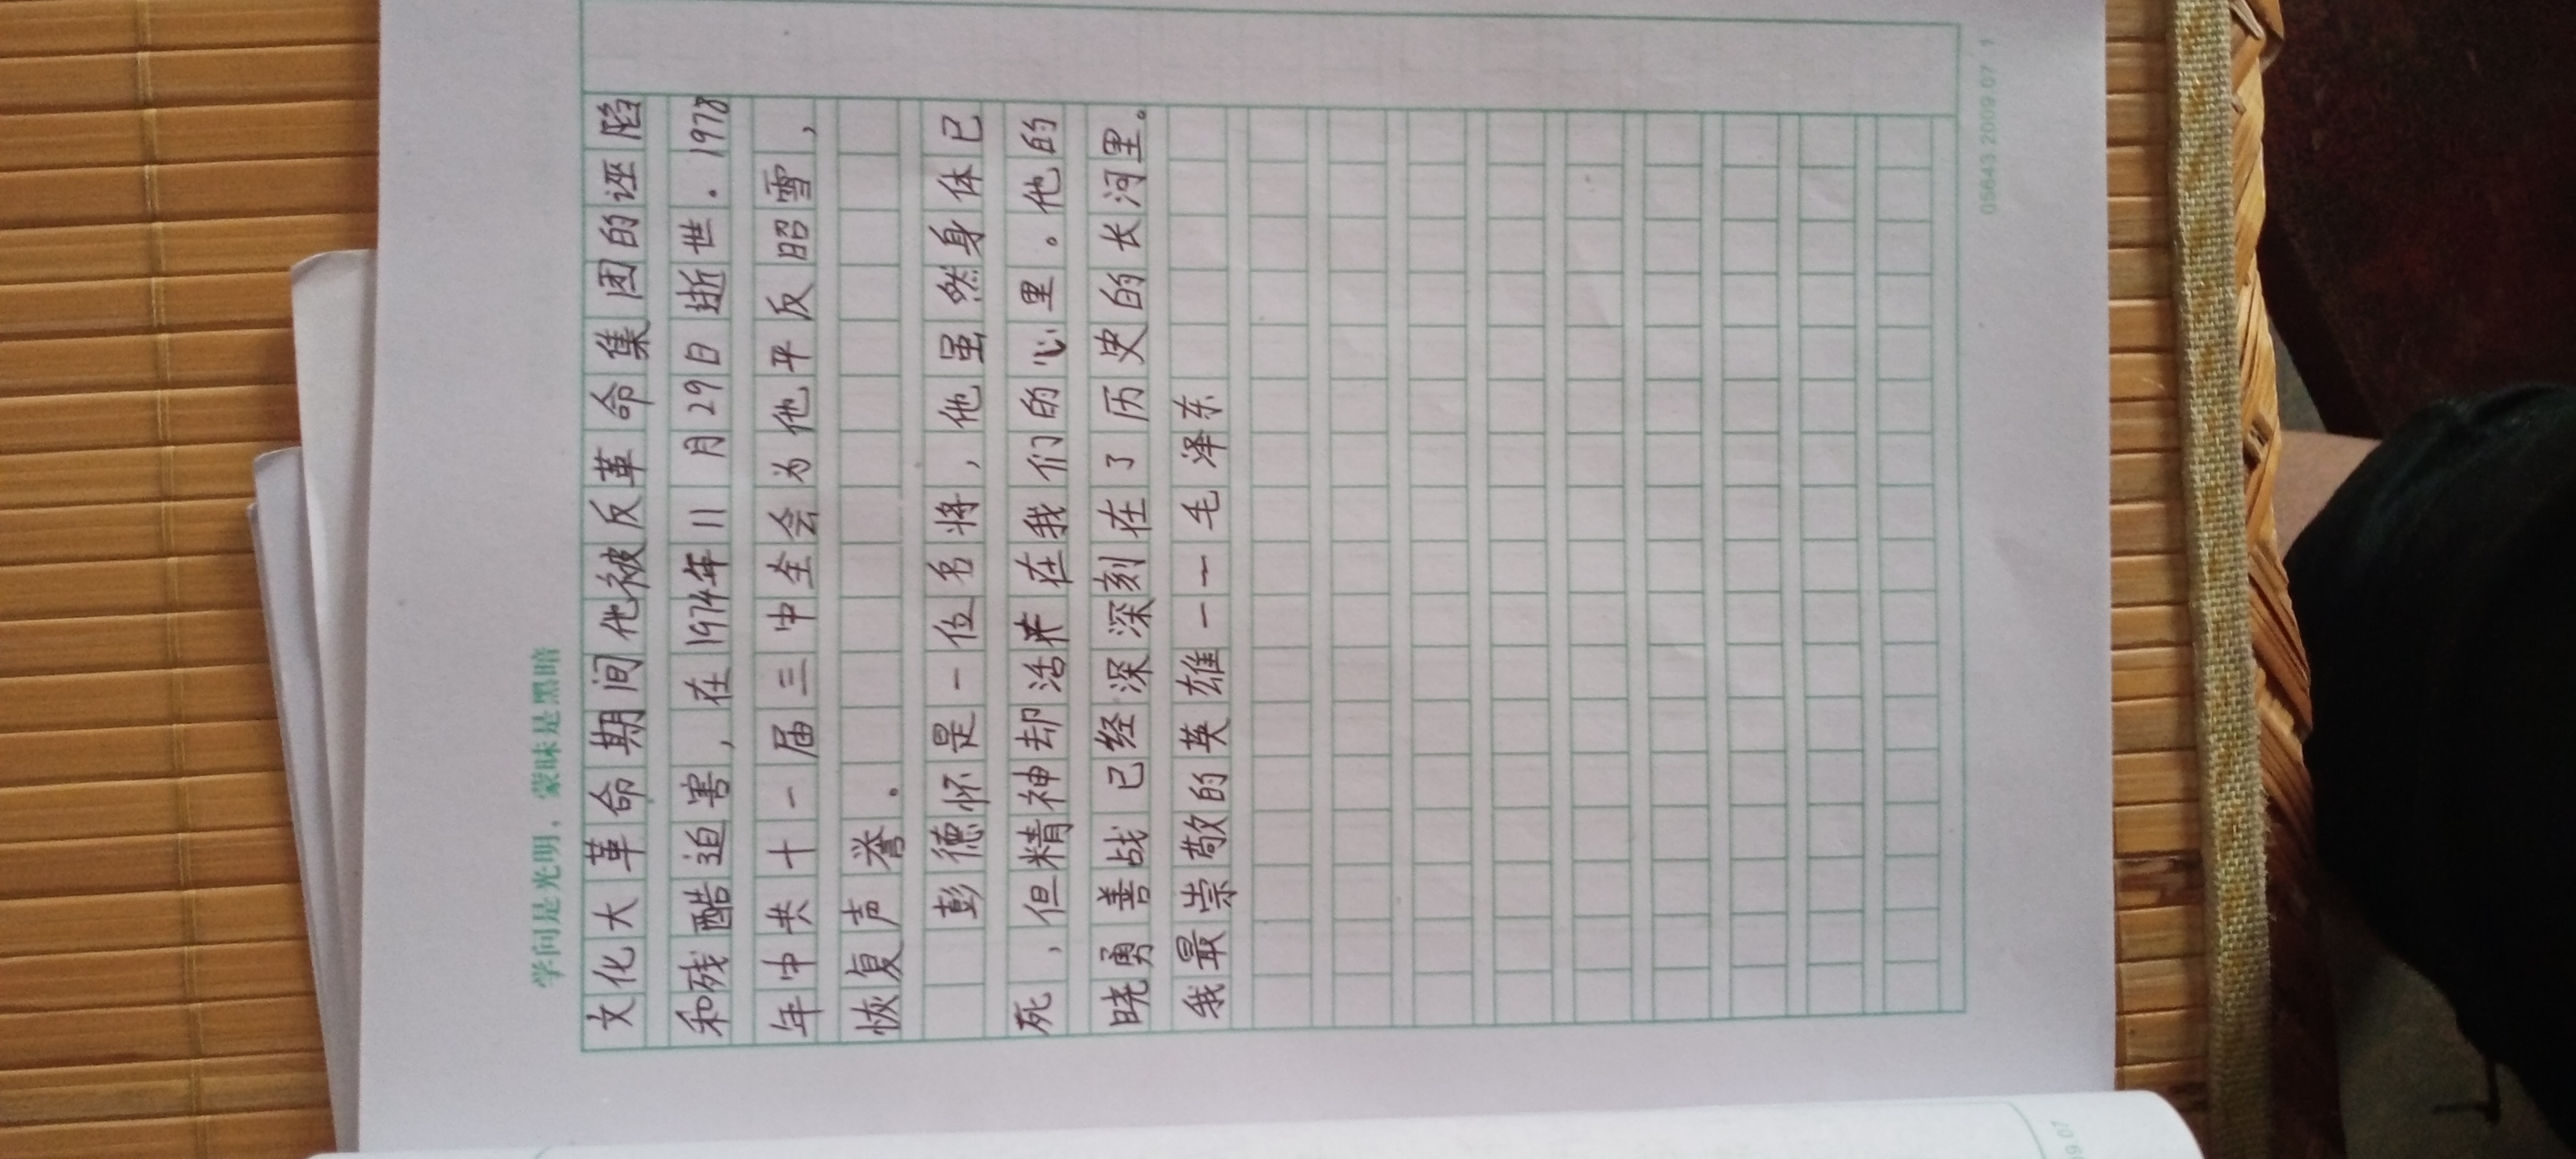 学问是光明，蒙昧是黑暗
文化大革命期间他被反革命集团的诬陷
和残酷迫害，在1974年11月29日逝世．1978
年中共十一届三中全会为他平反昭雪，
恢复声誉．
彭德怀是一位名将，他虽然身体已
死，但精神却活在我们的心里。他的
晓勇善战已经深深刻在了历史的长河里。
我最崇敬的英雄一一毛泽东
05643 2009.07 1
09.07